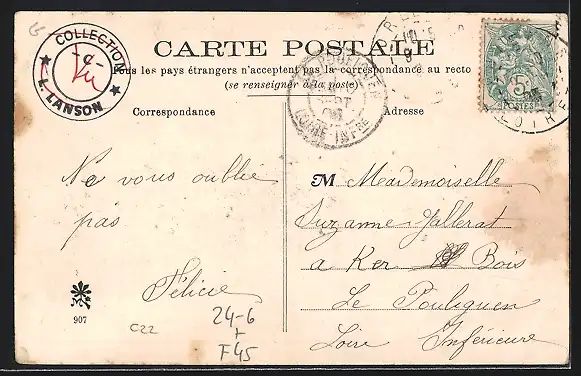 COLLECTION
L. LANSON
CARTE POSTALE
Tous les pays étrangers n'acceptent pas la correspondance au recto
(se renseigner à la poste)
Correspondance
Adresse
Ne vous oublie
pas
Félicie
M Mademoiselle
Suzanne
a Ker Bois
Le Pouliguen
Loire Inférieure
5
POSTES
LOIRE INFRE
907
C22
24-6
+
F45